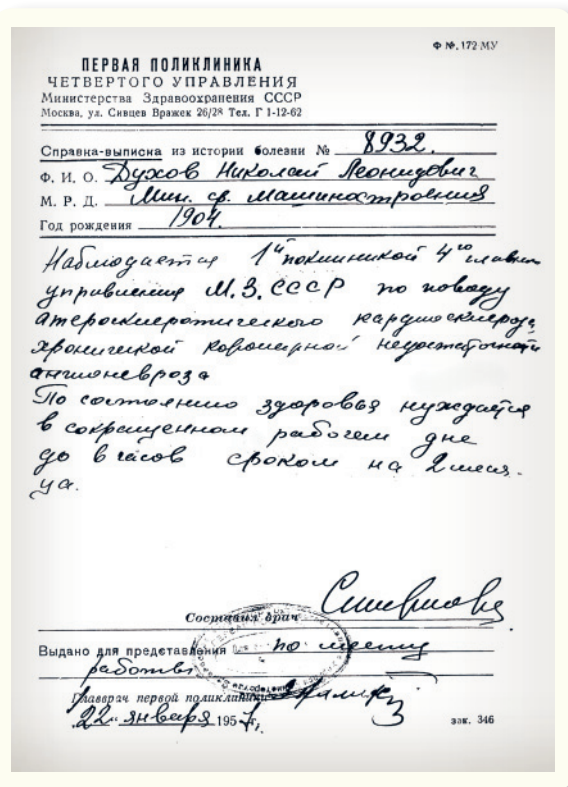 Ф №. 172 МУ
ПЕРВАЯ ПОЛИКЛИНИКА
ЧЕТВЕРТОГО УПРАВЛЕНИЯ
Министерства Здравоохранения СССР
Москва, ул. Сивцев Вражек 26/28 Тел. Г 1-12-62
Справка-выписка из истории болезни № 8932.
Ф. И. О. Духов Николай Леонидович
М. Р. Д. Мин. ср. машиностроения
Год рождения 1904.
Наблюдается 1й поликликой 4го главн
управления М.З.СССР по поводу
атеросклеротического кардиосклероза,
хронической коронарной недостаточности
ангионевроза
По состоянию здоровья нуждается
в сокращенном рабочем дне
до 6 часов сроком на 2 меся-
ца.
Составил врач Смирнова
Выдано для представления по месту
работы
Главврач первой поликлиники
"22" января 1957г.
зак. 346